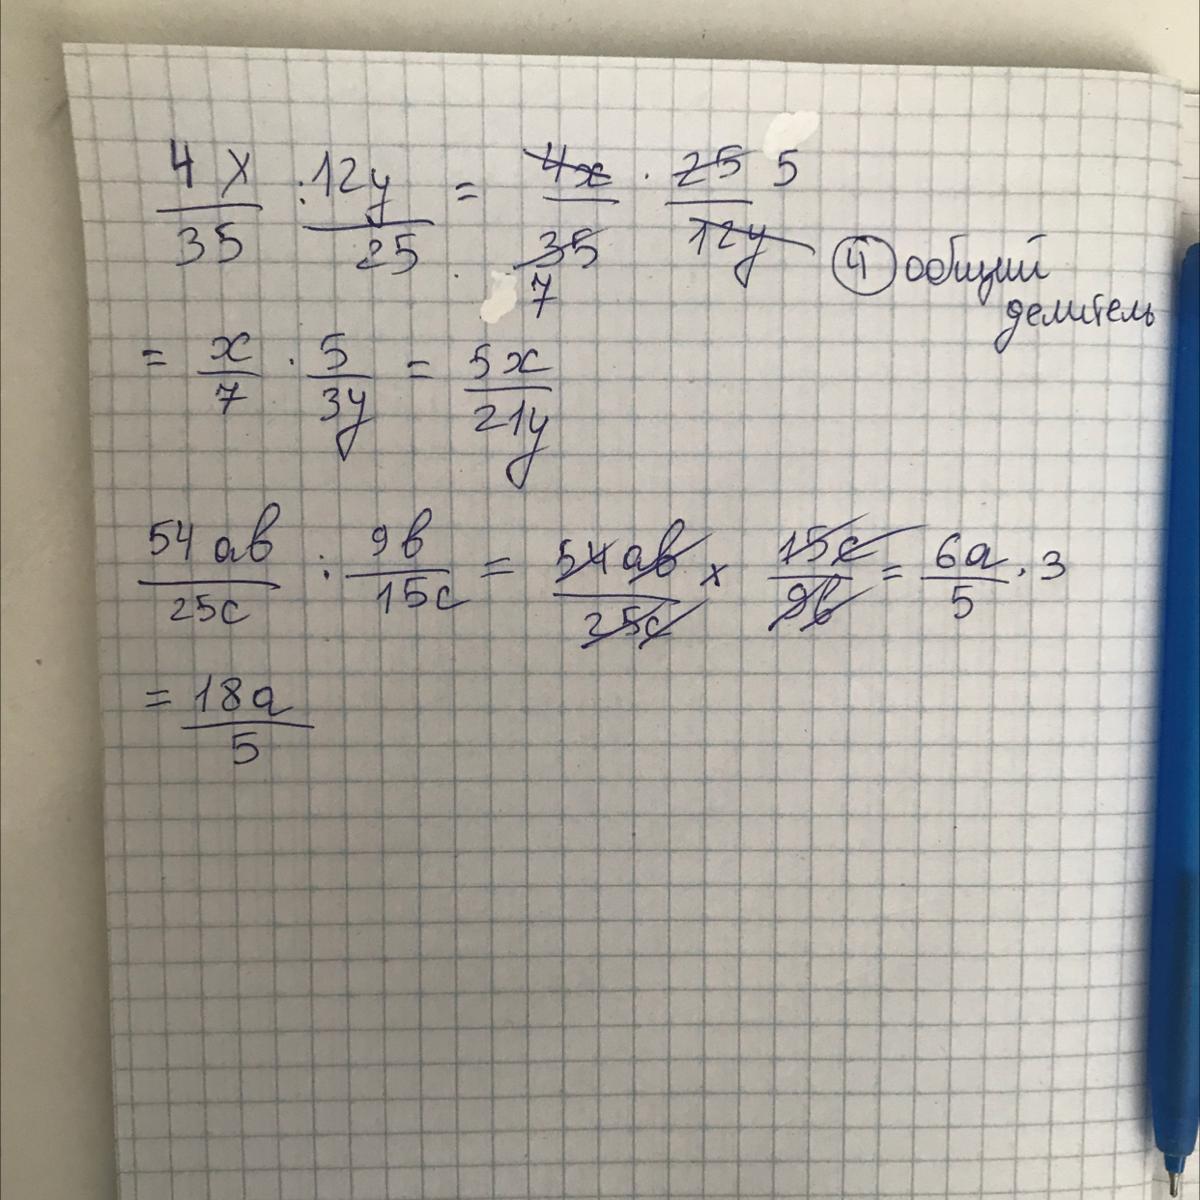 4x/35 : 12y/25 = 4x/35 7 · 25/12y 5
④ общий
делитель
= x/7 · 5/3y = 5x/21y
54ab/25c : 9b/15c = 54ab/25c x 15c/9b = 6a/5 · 3
= 18a/5